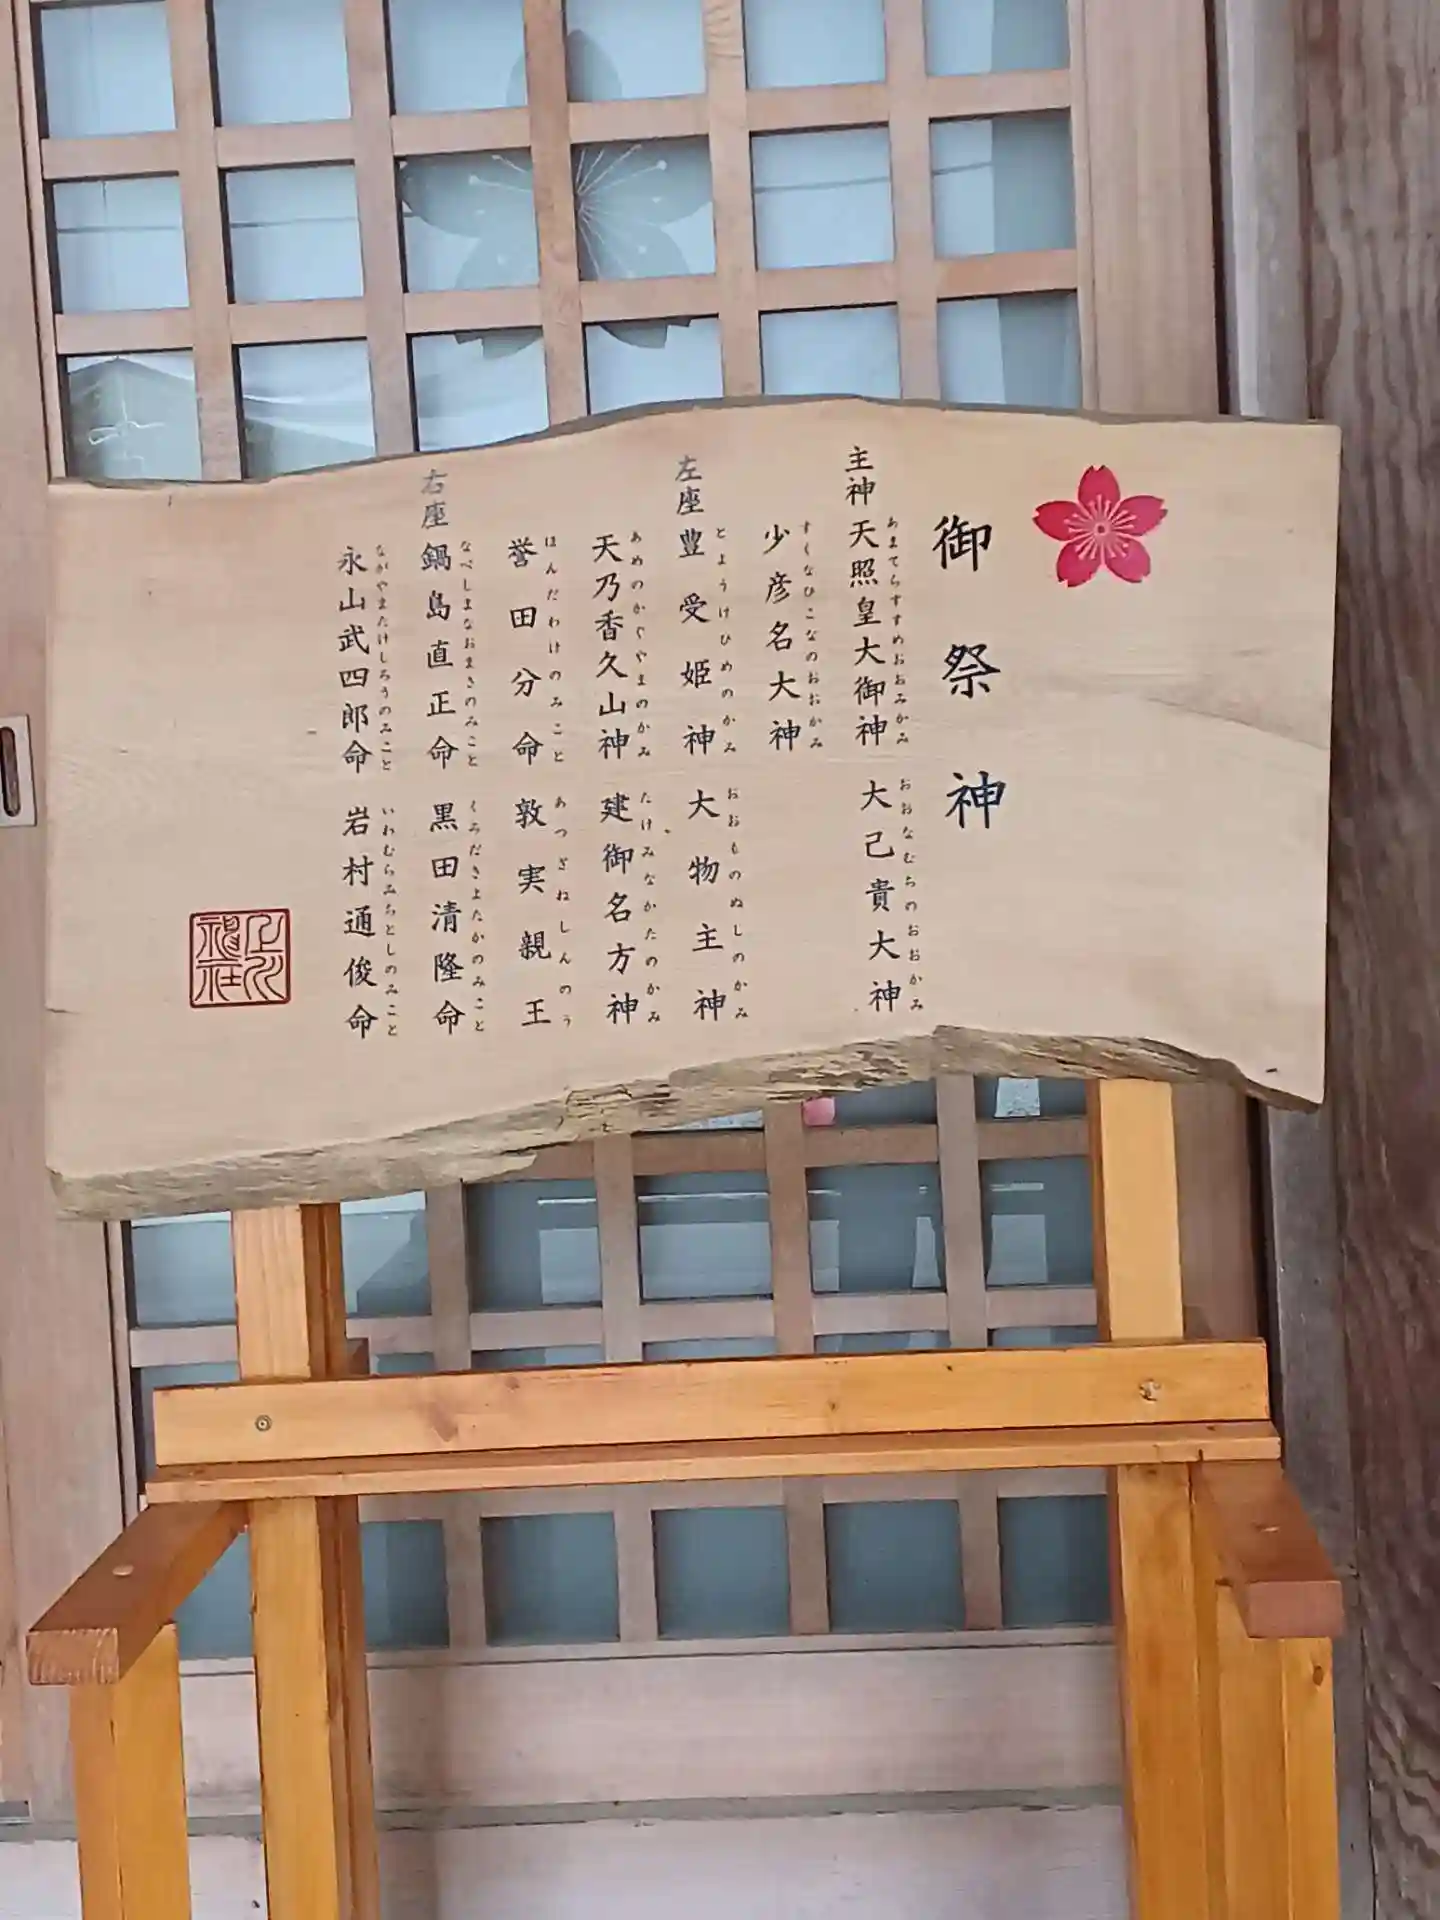 御祭神
主神 天照皇大御神 大己貴大神
あまてらすすめおおみかみ おおなむちのおおかみ
少彦名大神
すくなひこなのおおかみ
左座 豊受姫神 大物主神
とようけひめのかみ おおものぬしのかみ
天乃香久山神 建御名方神
あめのかぐやまのかみ たけみなかたのかみ
誉田分命 敦実親王
ほんだわけのみこと あつざねしんのう
右座 鍋島直正命 黒田清隆命
なべしまなおまさのみこと くろだきよたかのみこと
永山武四郎命 岩村通俊命
ながやまたけしろうのみこと いわむらみちとしのみこと
上川神社